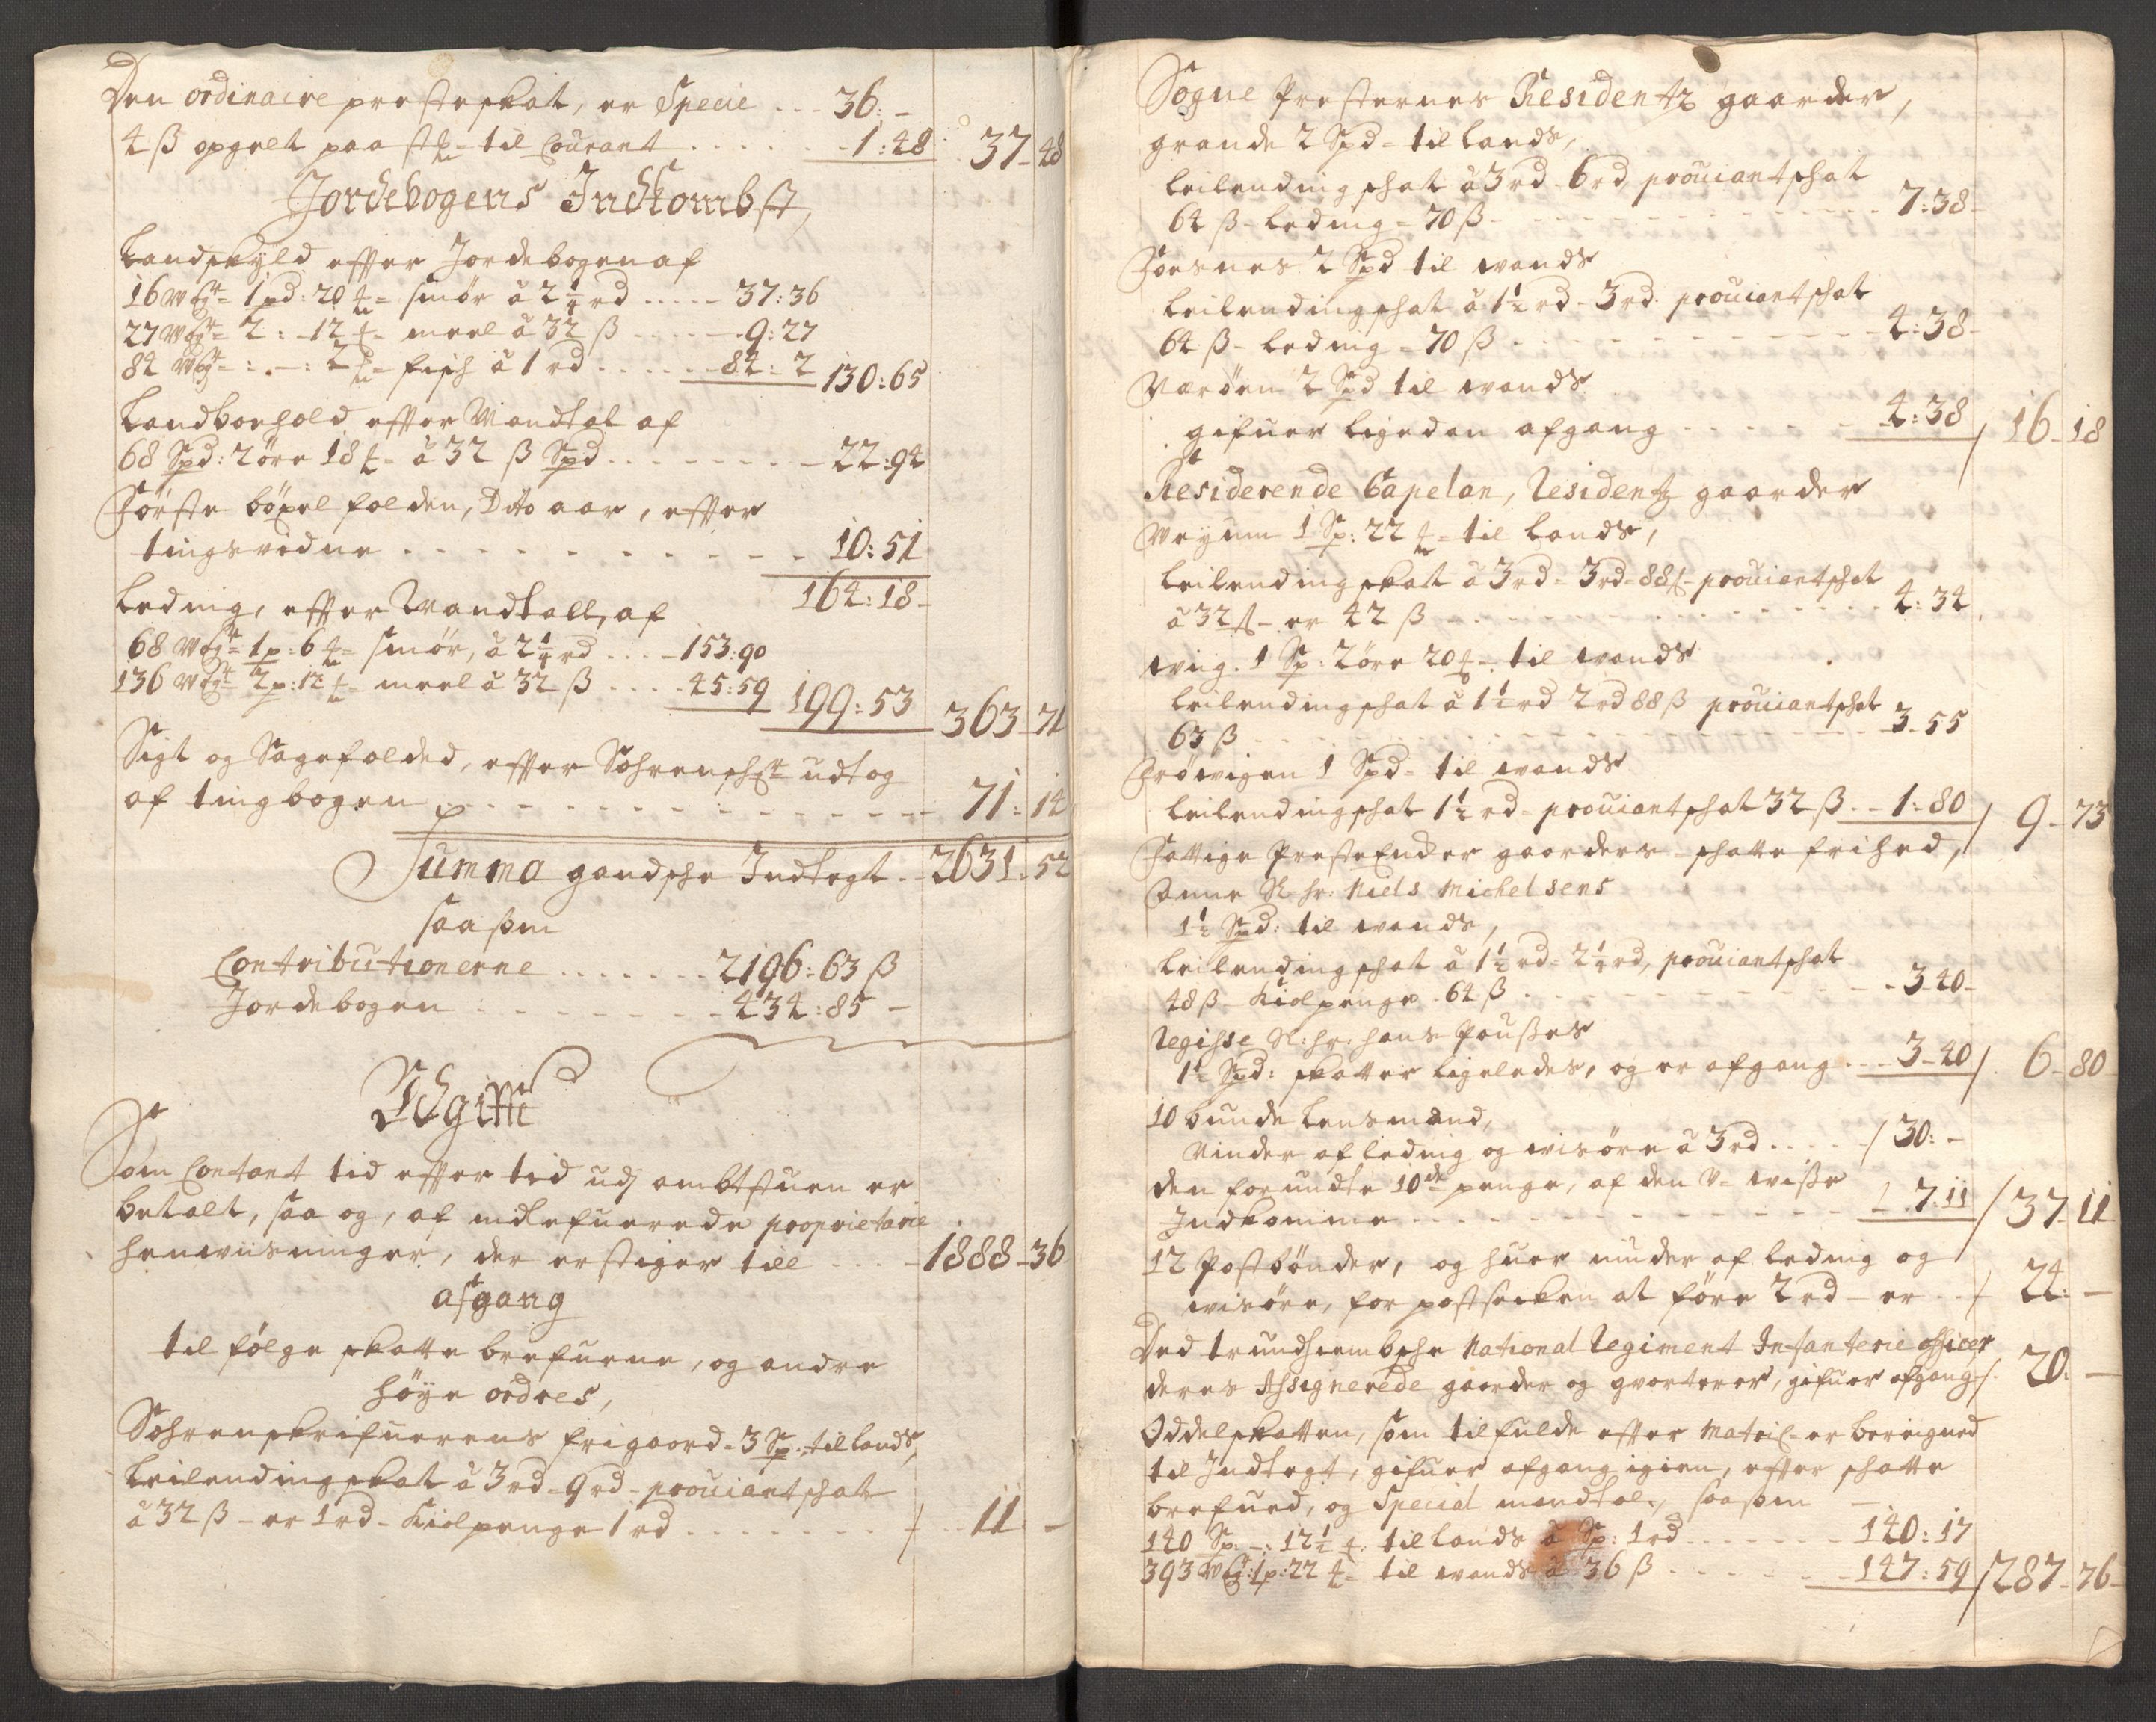 Den ordinaire presteskat, er Specie ... 36: -
4 ß opgelt paa stk- til Courant ...... 1:48 37-48
Jordebogens Indkombst,
Landskyld effter Jordebogen af
16 wog= 1 pd: 20 = smör á 2¼ rd ..... 37:36
27 wog= 2: -12 = meel á 32 ß ..... 9:27
84 wog= : . - : 2 = fisch á 1 rd ...... 84:2 130:65
Landborhold effter Mandtal af
68 Spd: 2 öre 18 = á 32 ß Spd ........ 22:94
Förste böxel folden, Dito aar, effter
tingsvidne ........... 10:51
164:18-
Leding, effter Mandtall, af
68 wog= 1 p: 6 = smör, á 2¼ rd .... 153:90
136 wog= 2 p: 12 = meel á 32 ß .... 45:59 199:53 363-71
Sigt og Sagefolded, effter Sohrensch: udtog
af tingbogen ............ 71:14
Summa gandsche Indtegt .. 2631:52
saasom
Contributionerne ....... 2196:63 ß
Jordebogen ........ 434:85 -
Udgifft
Som Contant tid effter tid udj ambtstuen er
betalt, saa og, af indlefuerede proprietarie
henviisninger, der erstiger till .... 1888-36
afgang
til fölge skatte brefuene, og andre
höye ordres,
Sohrenskrifuerens frigaard - 3 Sp: til lands,
Leilendingskat á 3 rd - 9 rd - prouiantschat
á 32 ß - er 1 rd - Kiolpenge 1 rd ....... / 11 -
Sogne Presternes Residentz gaarder,
grande 2 Spd - til lands,
leilending schat á 3 rd - 6 rd, prouiantschat
64 ß - leding - 70 ß ............ 7:38-
Foesnes 2 Spd til wands
leilendingschat á 1½ rd - 3 rd. prouiantschat
64 ß - leding - 70 ß ........... 4:38-
Næröen 2 Spd til wands
gifuer ligedan afgang ...... 4:38 / 16-18
Residerende Capelan, Residentz gaarder
Weyum 1 Sp: 22 = til lands,
leilending skat á 3 rd - 3 rd - 88 ß - prouiantschat
á 32 ß - er 42 ß .......... 4:34
wiig. 1 Sp: 2 öre 20 - til wands
leilendingschat á 1½ rd 2 rd 88 ß prouiantschat
63 ß ................ 3-55
Fröwigen 1 Spd - til wands
leilendingschat 1½ rd - prouiantschat 32 ß .. 1:80 / 9-73
Fattige Preste Encker gaarders - schatte frihed,
Anne Sl. hr: Niels Michelsens
1½ Spd: til wands,
leilendingschat á 1½ rd - 2¼ rd, prouiantschat
48 ß - Kiolpenge - 64 ß ......... 3-40-
Regisse Sl: hr: hans Poußes
1½ Spd: skatter ligeledes, og er afgang ... 3-40 / 6-80
10 bunde lensmænd,
Ninder af leding og wisöre á 3 rd .... / 30: -
den forundte 10de penge, af den u-wisse
Indkomme ............ / 7:11 / 37-11
12 Postbönder, og huer ninder af leding og
wisöre, for postsecken at före 2 rd - er .. / 24: -
Ded trundhiembsche National Regiment Infanterie officer
deres Assignerede gaarder og qvarterer, gifuer afgang /. 20: -
Oddelskatten, som tilfulde effter Matric- er bereignet
til Indtegt, gifuer afgang igien, effter schatte
brefued, og Special mandtal, saasom -
140 Sp: -: 12½ . til lands á Sp: 1 rd ....... 140:17
393 wog: 1 p: 22 = til wands á 36 ß ....... 147:59 / 287-76-